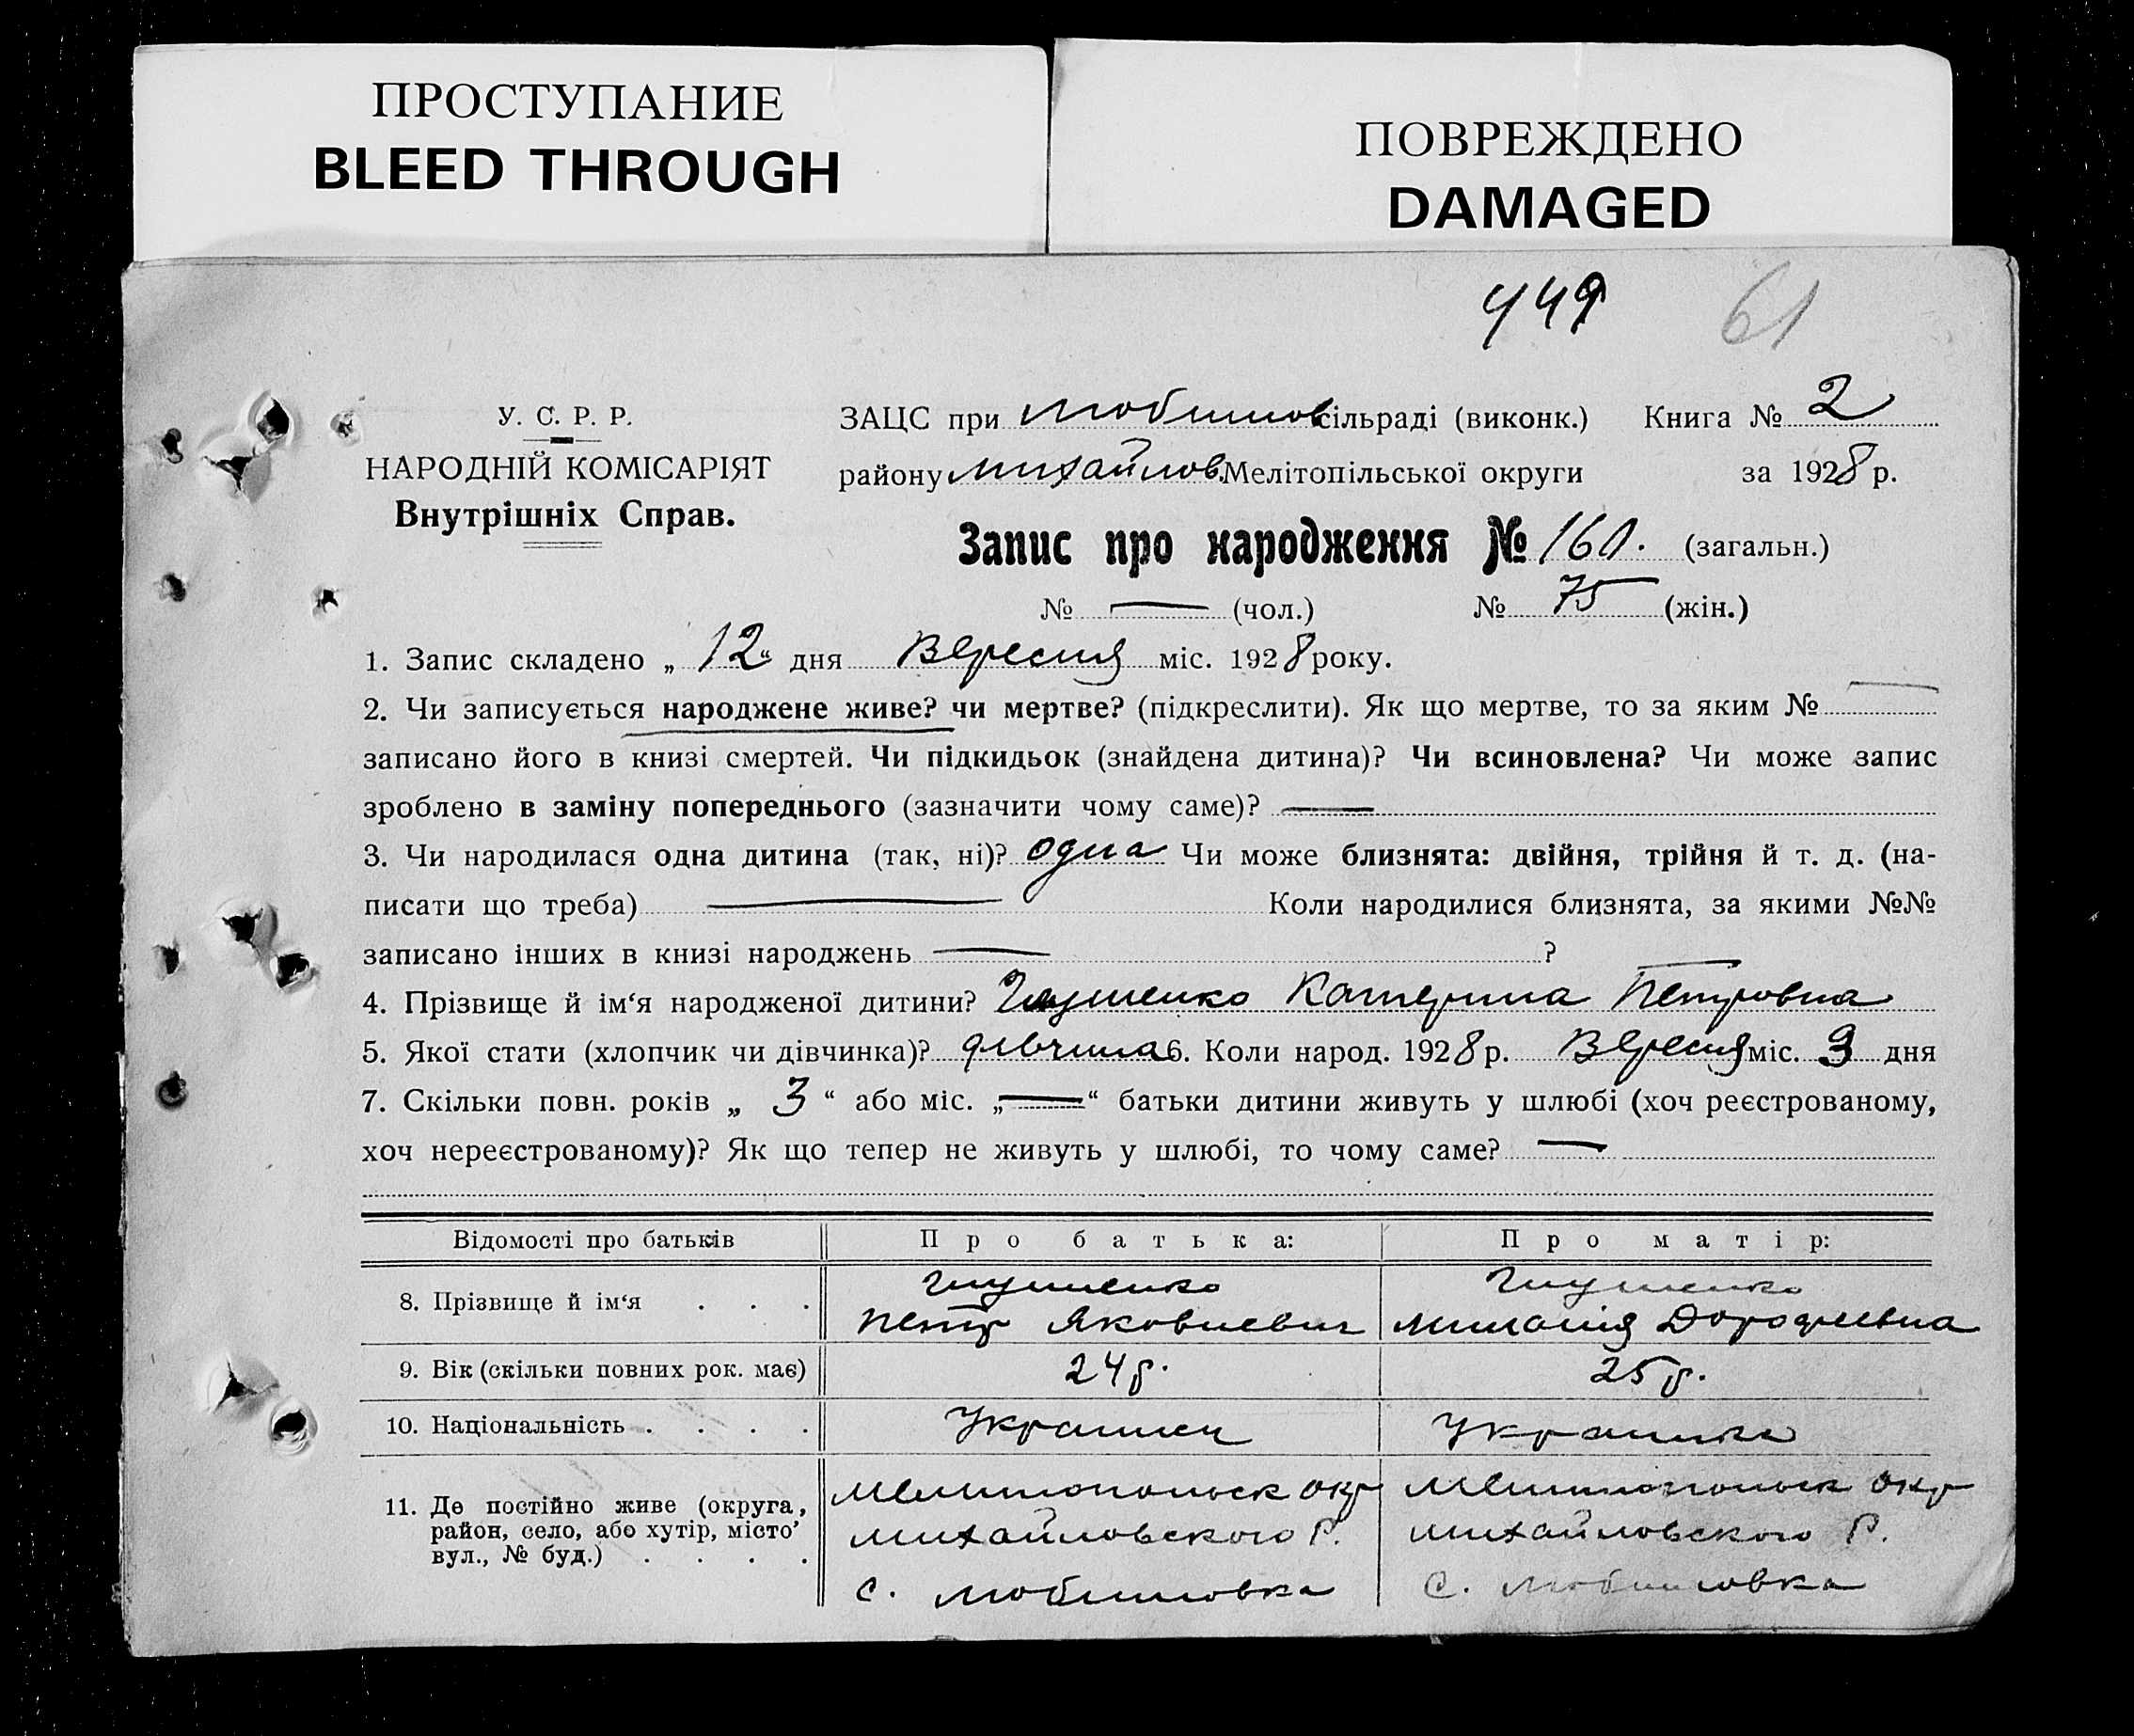 ПРОСТУПАНИЕ
BLEED THROUGH
ПОВРЕЖДЕНО
DAMAGED
449 61
У. С. Р. Р.
НАРОДНІЙ КОМІСАРІЯТ
Внутрішніх Справ.
ЗАЦС при Любимов сільраді (виконк.) Книга № 2
району Михайлов. Мелітопільської округи за 1928 р.
Запис про народження № 160. (загальн.)
№ — (чол.) № 75 (жін.)
1. Запис складено „ 12 “ дня Вересня міс. 1928 року.
2. Чи записується народжене живе? чи мертве? (підкреслити). Як що мертве, то за яким № —
записано його в книзі смертей. Чи підкидьок (знайдена дитина)? Чи всиновлена? Чи може запис
зроблено в заміну попереднього (зазначити чому саме)? —
3. Чи народилася одна дитина (так, ні)? одна Чи може близнята: двійня, трійня й т. д. (на-
писати що треба) — Коли народилися близнята, за якими №№
записано інших в книзі народжень — ?
4. Прізвище й ім‘я народженої дитини? Глушенко Катерина Петровна
5. Якої стати (хлопчик чи дівчинка)? дівчина 6. Коли народ. 1928 р. Вересня міс. 3 дня
7. Скільки повн. років „ 3 “ або міс. „ — “ батьки дитини живуть у шлюбі (хоч реєстрованому,
хоч нереєстрованому)? Як що тепер не живуть у шлюбі, то чому саме? —
Відомості про батьків Про батька: Про матір:
8. Прізвище й ім‘я . . . Глушенко Глушенко
Петр Яковлевич Миланія Дорофеевна
9. Вік (скільки повних рок. має) 24 р. 25 р.
10. Національність . . . . Украинец Украинка
11. Де постійно живе (округа, район, село, або хутір, місто’ вул., № буд.) . . . .
Мелитопольск окр Мелитопольск окр
Михайловского Р. Михайловского Р.
с. Любимовка с. Любимовка